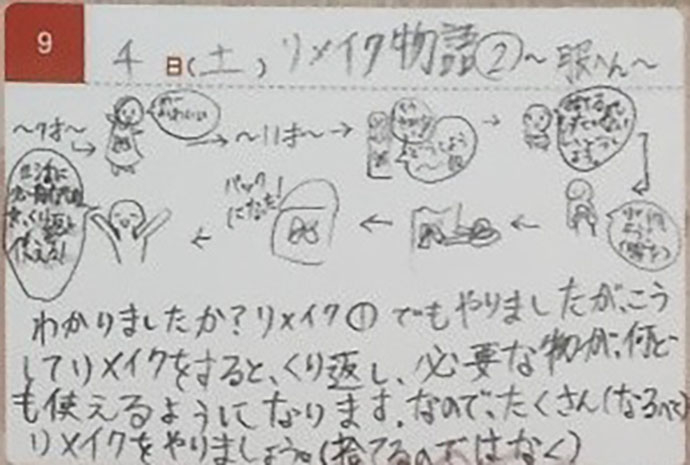 9 4日(土) リメイク物語②～服へん～
～7才～
～11才～
バック
になった!
生活に
くり返し
使える!
わかりましたか?リメイク①でもやりましたが、こう
してリメイクをすると、くり返し、必要な物が、何ど
も使えるようになります。なので、たくさん(なるべく)
リメイクをやりましょう。(捨てるのではなく)